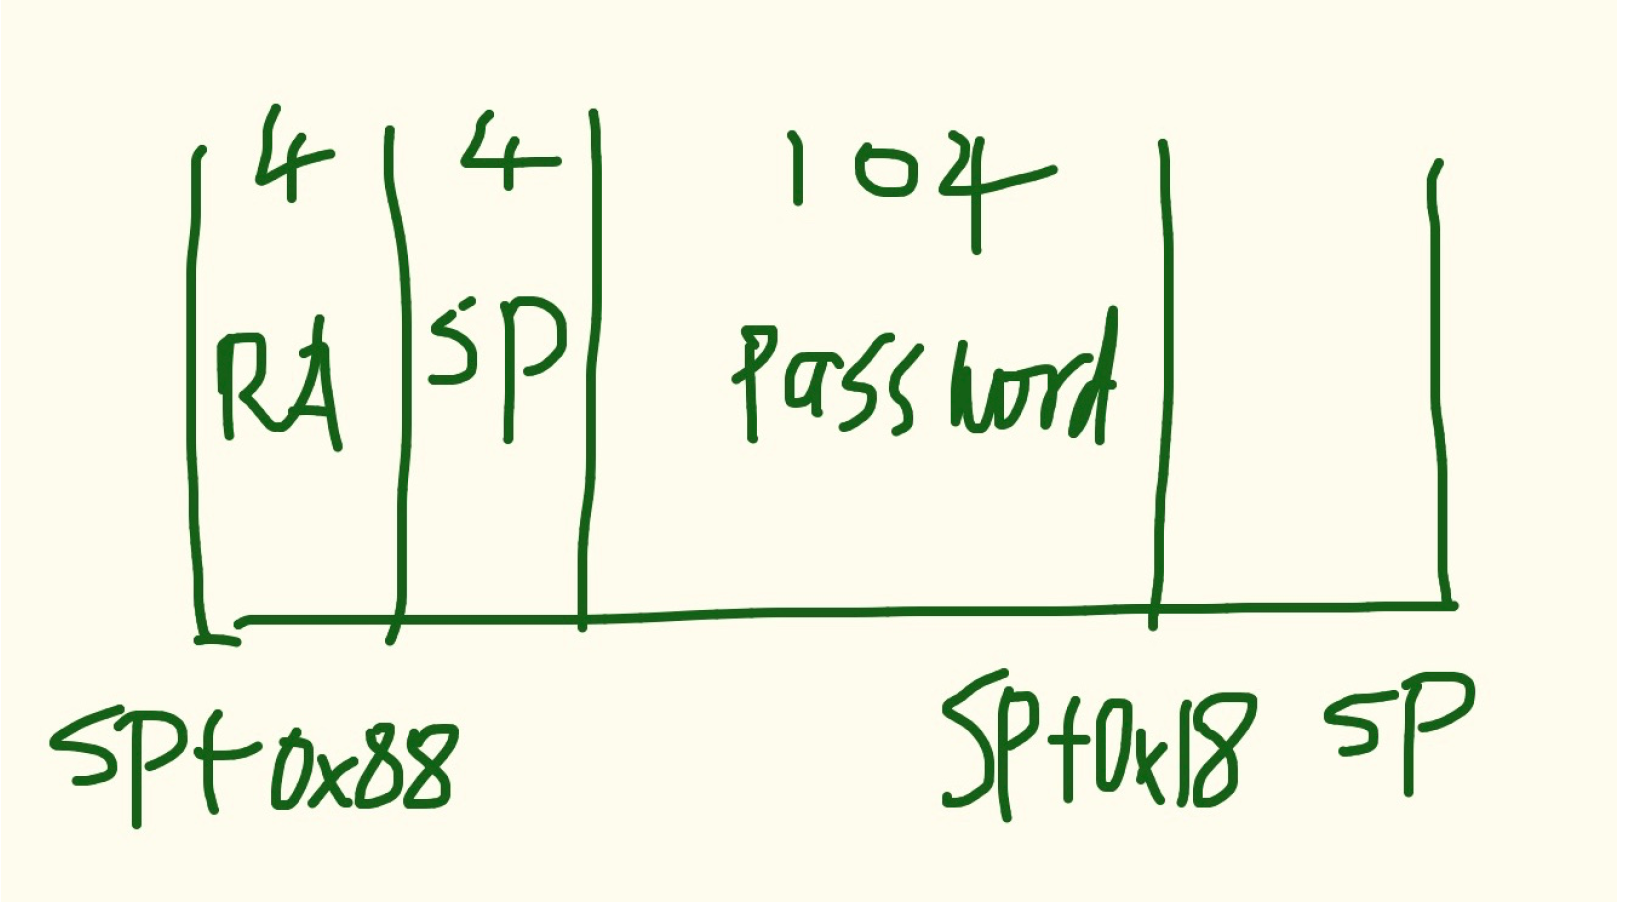 4 4 104
RA SP Password
SP+0x88 SP+0x18 SP